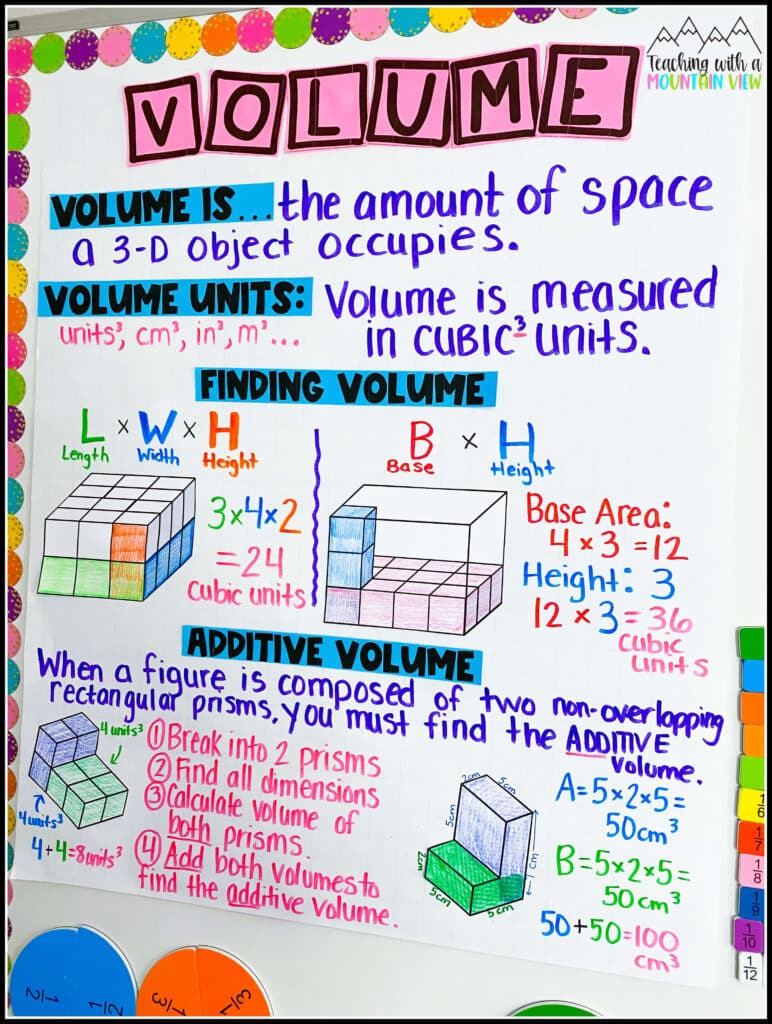 Teaching with a
MOUNTAIN VIEW
VOLUME
VOLUME IS... the amount of space
a 3-D object occupies.
VOLUME UNITS: Volume is measured
units³, cm³, in³, m³... in CUBIC³ units.
FINDING VOLUME
L × W × H
Length Width Height
3×4×2
=24
cubic units
B × H
Base Height
Base Area:
4 × 3 =12
Height: 3
12 × 3 = 36
cubic
units
ADDITIVE VOLUME
When a figure is composed of two non-overlapping
rectangular prisms, you must find the ADDITIVE
volume.
4 units³
4 units³
4+4=8units³
① Break into 2 prisms
② Find all dimensions
③ Calculate volume of
both prisms.
④ Add both volumes to
find the additive volume.
2cm 5cm
5cm
cm
2cm
5cm 5cm
A=5×2×5=
50cm³
B=5×2×5=
50cm³
50+50=100
cm³
1/6
1/7
1/8
1/9
1/10
1/12
1/2 1/2
1/3 1/3